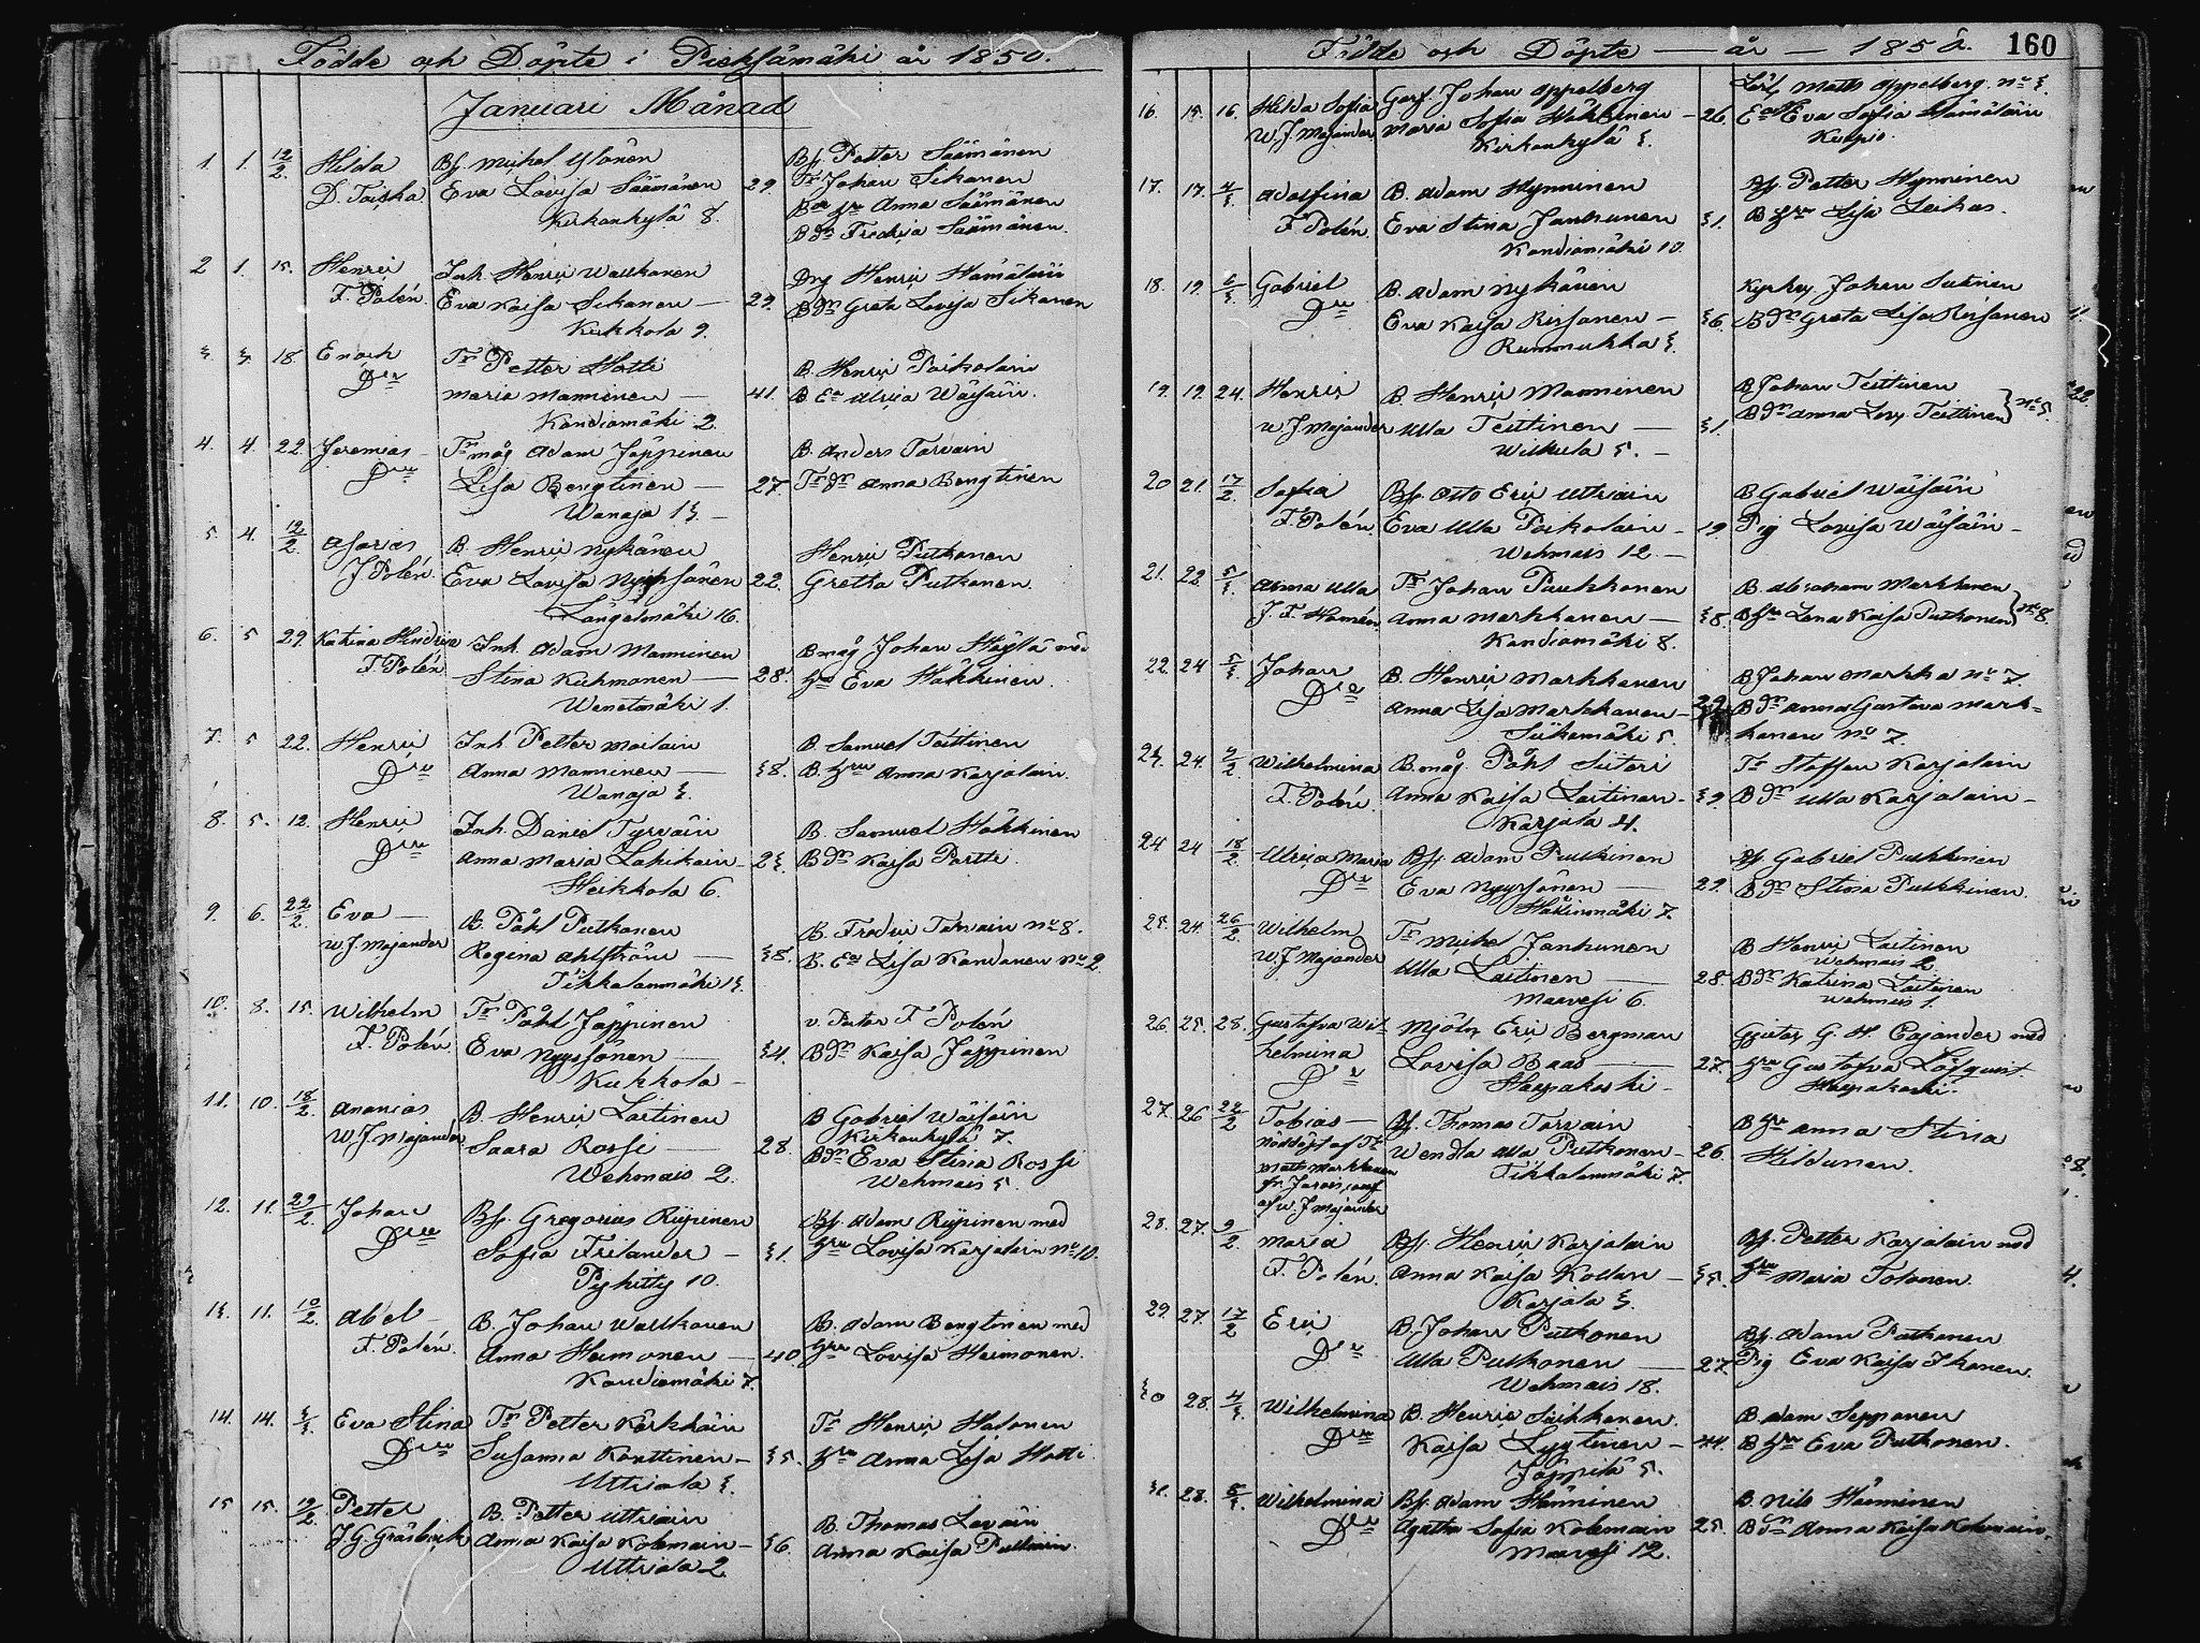 Födde och Döpte i Pieksämäki år 1850.
Januari Månad
1. 1. 12/2. Hilda Bf. Michel Ylönen Bf. Petter Säämänen
D. Toiska Eva Lovisa Säämänen 29. Tr Johan Sikanen
Kirkonkylä 8. Anna Säämänen
Bdr Fredrica Säämänen.
2 1. 15. Henric Inh. Henric Wallkonen Drg Henric Hämäläin
F. Polén. Eva Kaisa Sikanen — 29. Bdr Greta Lovisa Sikanen
Kukkola 9.
3. 3. 18. Enoch Tr Petter Hotti B. Henric Paikolain
Dre Maria Manninen — 41. B. Ea Ulrica Wäisäin.
Kandiamäki 2.
4. 4. 22. Jeremias Tr måg Adam Jäppinen B. Anders Tarvain
Dre Lisa Bengtinen — 27. Tr dr Anna Bengtinen
Wanaja 13. —
5. 4. 19/2. Asarias B. Henric Nykänen Henric Putkonen
F Polén. Eva Lovisa Nyyssönen 22. Gretha Putkonen.
Längelmäki 16.
6. 5 29. Katrina Hindrica Inh. Adam Manninen Bmåg Johan Häylä med
F. Polén Stina Kuhmonen — 28. hu Eva Häkkinen.
Wenetmäki 1.
7. 5 22. Henric Inh Petter Moilain B. Samuel Teittinen
Dre Anna Manninen — 38. B. hru Anna Karjalain.
Wanaja 3.
8. 5. 12. Henric Inh. Daniel Tyrväin B. Samuel Häkkinen
Dre Anna Maria Lahikain — 23. Bdr Kaisa Partti.
Heikkola 6.
9. 6. 22/2. Eva — B. Påhl Putkonen B. Fredric Tarvain No 8.
W J Majander Regina Ahlström — 38. B. Ea Lisa Kandanen No 2
Tikkalanmäki 13.
10. 8. 15. Wilhelm Tr Påhl Jäppinen v. Pastor F Polén
F. Polén. Eva Nyyssönen — 34. Bdr Kaisa Jäppinen
Kukkola —
11. 10. 18/2. Ananias B. Henric Laitinen B Gabriel Wäisäin
Kirkonkylä 7.
W. J. Majander Saara Rossi — 28. Bdr Eva Stina Rossi
Wehmais 2. Wehmais 5.
12. 11. 22/2. Johan Bf. Gregorius Riipinen Bf. Adam Riipinen med
Dre Sofia Frilander — 31. hru Lovisa Karjalain No 10.
Pyhitty 10.
13. 11. 10/2. Abel — B. Johan Wallkonen B. Adam Bengtinen med
F. Polén. Anna Heimonen — 40. hru Lovisa Heimonen.
Kandiamäki 7.
14. 14. 3/3. Eva Stina Tr Petter Kärkkäin Tr Henric Halonen
Dre Susanna Konttinen — 35. hru Anna Lisa Hotti.
Uttriala 3.
15 15. 19/2. Petter B. Petter Uttriain B. Thomas Lavain
J. G. Gråsbeck Anna Kaisa Kolemain — 36. Anna Kaisa Pulliain.
Uttriala 2.
Födde och Döpte — år — 1850. 160
16. 15. 16. Hilda Sofia Garf. Johan Appelberg Lärl. Matts Appelberg. No 3.
W. J. Majander Maria Sofia Häkkinen — 26. Eva Sofia Hämäläin
Kirkonkylä 3. Kuopio.
17. 17. 4/3. Adolfina B. Adam Hynninen Bf. Petter Hynninen
F. Polén. Eva Stina Jankunen 31. B hru Lisa Leikas.
Kandiamäki 10.
18. 19. 6/3. Gabriel B. Adam Nykänen Kyrkv. Johan Sutinen
Dre Eva Kaisa Reisanen — 36. Bdr Greta Lisa Reisanen
Rummukka 3.
19. 19. 24. Henric B Henric Manninen B Johan Teittinen
W J Majander Ulla Teittinen — 31. Bdr Anna Lov. Teittinen } No 5.
Wilkula 5. —
20 21. 17/2. Sofia Bf. Otto Eric Uttriain B Gabriel Wäisäin
F. Polén. Eva Ulla Paikolain — 19. Pig Lovisa Wäisäin —
Wehmais 12. —
21. 22. 5/3. Anna Ulla Tr Johan Puukkonen B. Abraham Markkanen
J. F. Homén. Anna Markkanen — 38. Bhru Lena Kaisa Putkonen } No 8.
Kandiamäki 8.
22. 24 5/3. Johan B. Henric Markkanen B Johan Markka No 7.
Dre Anna Lisa Markkanen — 29. Bdr Anna Gustava Mark=
Siikamäki 5. kanen No 7.
23. 24. 4/2. Wilhelmina B.måg. Påhl Siitari Tr Staffan Karjalain
F. Polén. Anna Kaisa Laitinen — 39. Bdr Ulla Karjalain —
Karjala 4.
24 24 18/2. Ulrica Maria Bf. Adam Pulkinen Bf. Gabriel Pulkkinen
Dre Eva Nyyssönen — 29. Bdr Stina Pulkkinen.
Häkinmäki 7.
25. 24. 26/2. Wilhelm Tr Michel Jankunen B Henric Laitinen
Wehmais 2
W. J Majander Ulla Laitinen — 28. Bdr Katrina Laitinen
Maavesi 6. Wehmais 1.
26. 25. 28. Gustafva Wil= Mjöln. Eric Bergman G. H. Cajander med
helmina Lovisa Baas — 27. hru Gustafva Löfquist
Dre Haapakoski — Haapakoski.
27. 26 22/2 Tobias — Bf. Thomas Tarvain B hru Anna Stina
nöddöpt af Tr Wendla Ulla Putkonen — 26. Hildunen.
Matts Markkanen Tikkalanmäki 7.
fr. Jorois, conf.
af W. J Majander
28. 27. 9/2. Maria Bf. Henric Karjalain Bf. Petter Karjalain med
F. Polén. Anna Kaisa Kollan — 35. hru Maria Tolonen.
Karjala 3.
29. 27. 17/2 Eric B. Johan Putkonen Bf. Adam Putkonen
Dre Ulla Putkonen — 27. Pig Eva Kaisa Ikonen.
Wehmais 18.
30 28. 4/3. Wilhelmina B. Henric Siikkanen. B. Adam Sepponen
Dre Kaisa Lyytinen — 44. B hru Eva Putkonen.
Jäppilä 5.
31. 28. 5/3. Wilhelmina Bf. Adam Hänninen B. Nils Hänninen
Dre Agatha Sofia Kolemain 25. Bdr Anna Kaisa Kolemain.
Maavesi 12.